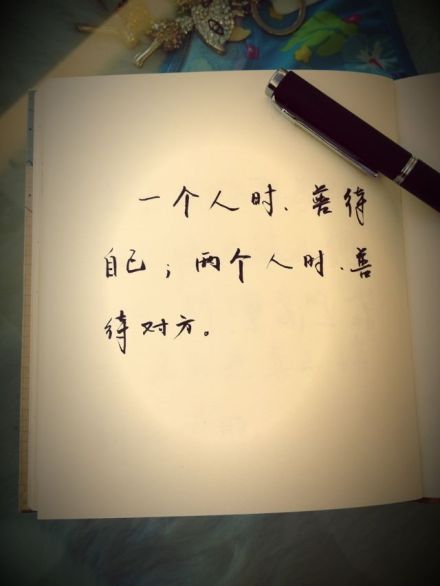 一个人时、善待
自己；两个人时、善
待对方。